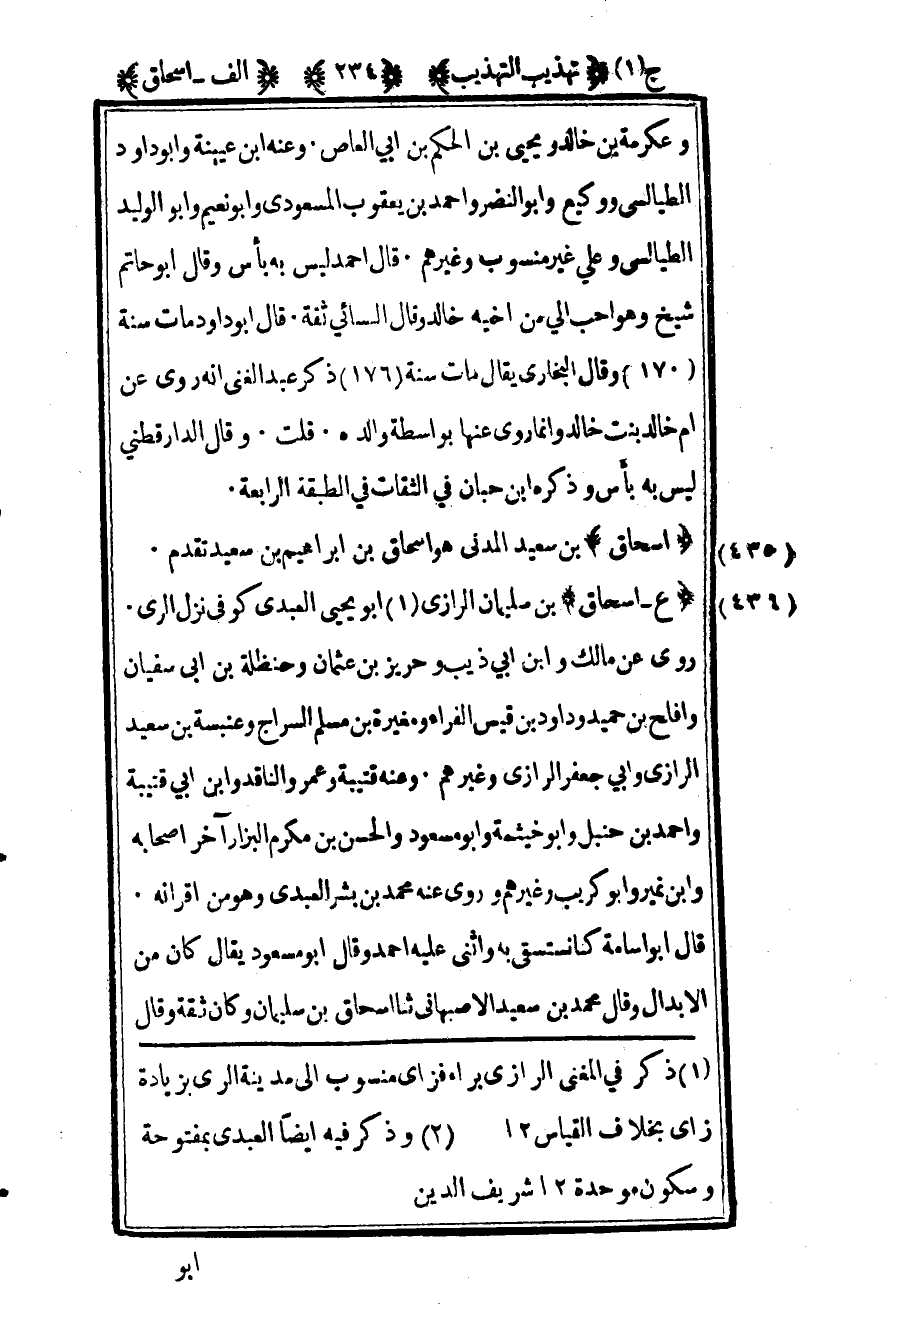 ج(١) ﴿ تهذيب التهذيب ﴾ ﴿ ٢٣٤ ﴾ ﴿ الف ـ اسحاق ﴾
و عكرمة بن خالد و يحيى بن الحكم بن ابي العاص ٠ وعنه ابن عيينة وابو داود
الطيالسى ووكيع وابو النضر واحمد بن يعقوب المسعودى وابو نعيم وابو الوليد
الطيالسى و علي غير منسوب وغيرهم ٠ قال احمد ليس به بأس وقال ابو حاتم
شيخ وهو احب الي من اخيه خالد وقال النسائي ثقة ٠ قال ابو داود مات سنة
(١٧٠) وقال البخارى يقال مات سنة (١٧٦) ذكر عبد الغنى انه روى عن
ام خالد بنت خالد وانما روى عنها بواسطة والده ٠ قلت ٠ وقال الدارقطني
ليس به بأس و ذكره ابن حبان في الثقات في الطبقة الرابعة ٠
(٤٣٥) ﴿ اسحاق ﴾ بن سعيد المدنى هو اسحاق بن ابراهيم بن سعيد تقدم ٠
(٤٣٦) ﴿ ع ـ اسحاق ﴾ بن سليمان الرازى (١) ابو يحيى العبدى كوفى نزل الرى ٠
روى عن مالك و ابن ابي ذيب و حريز بن عثمان وحنظلة بن ابى سفيان
وافلح بن حميد وداود بن قيس الفراء ومغيرة بن مسلم السراج وعنبسة بن سعيد
الرازى وابي جعفر الرازى وغيرهم ٠ وعنه قتيبة وعمرو الناقد وابن ابي قتيبة
واحمد بن حنبل وابو خيثمة وابو مسعود والحسن بن مكرم البزار آخر اصحابه
وابن نمير وابو كريب وغيرهم و روى عنه محمد بن بشر العبدى وهو من اقرانه ٠
قال ابو اسامة كنا نستسقى به واثنى عليه احمد وقال ابو مسعود يقال كان من
الابدال وقال محمد بن سعيد الاصبهانى ثنا اسحاق بن سليمان وكان ثقة وقال
(١) ذكر في المغنى الرازى براء فزاى منسوب الى مدينة الرى بزيادة
زاى بخلاف القياس ١٢ (٢) و ذكر فيه ايضاً العبدى بمفتوحة
و سكون موحدة ١٢ شريف الدين
ابو